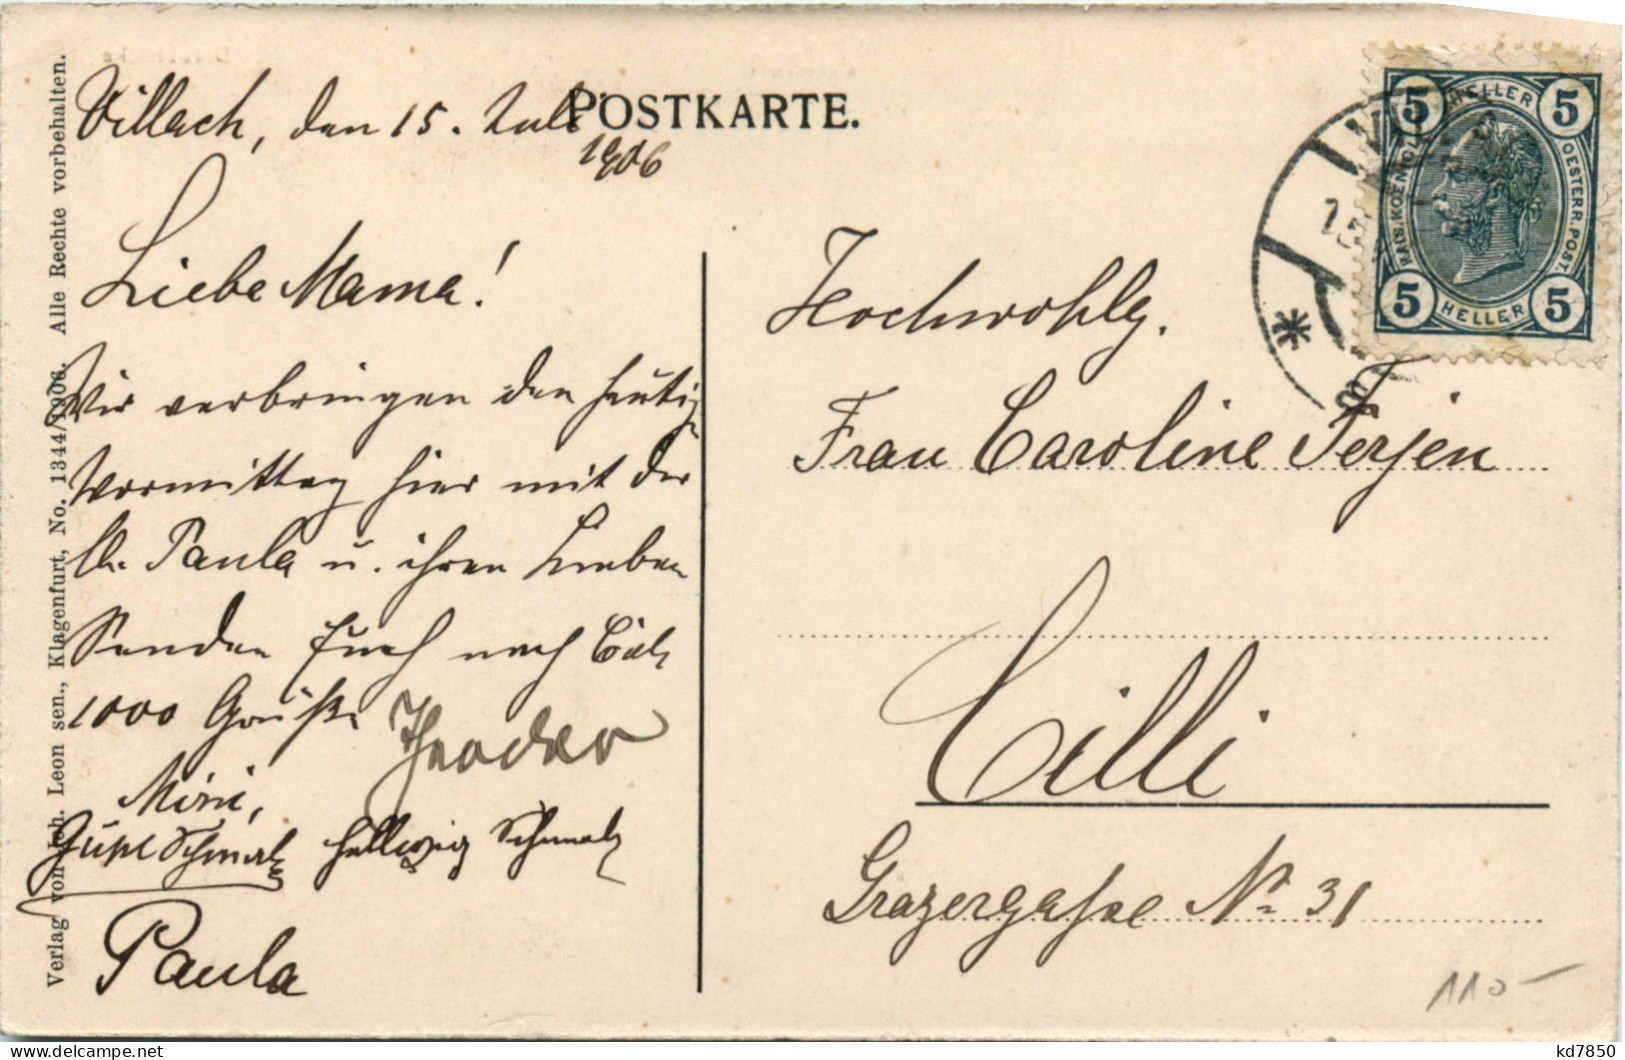 POSTKARTE.
Villach, den 15. Juli
1906
Liebe Mama!
Wir verbringen den heutig.
Vormittag hier mit der
Paula u. ihren Lieben
Senden Euch nach
1000 Grüße
Theodor
Mini,
Schmalz Hellwig Schmalz
Paula
Hochwohlg.
Frau Caroline Ferjen
Cilli
Grazergasse № 31
110-
5 HELLER 5
KAIS. KOENIGL. OESTERR. POST.
5 HELLER 5
Verlag von Joh. Leon sen., Klagenfurt, No. 1344/1906. Alle Rechte vorbehalten.
kd7850